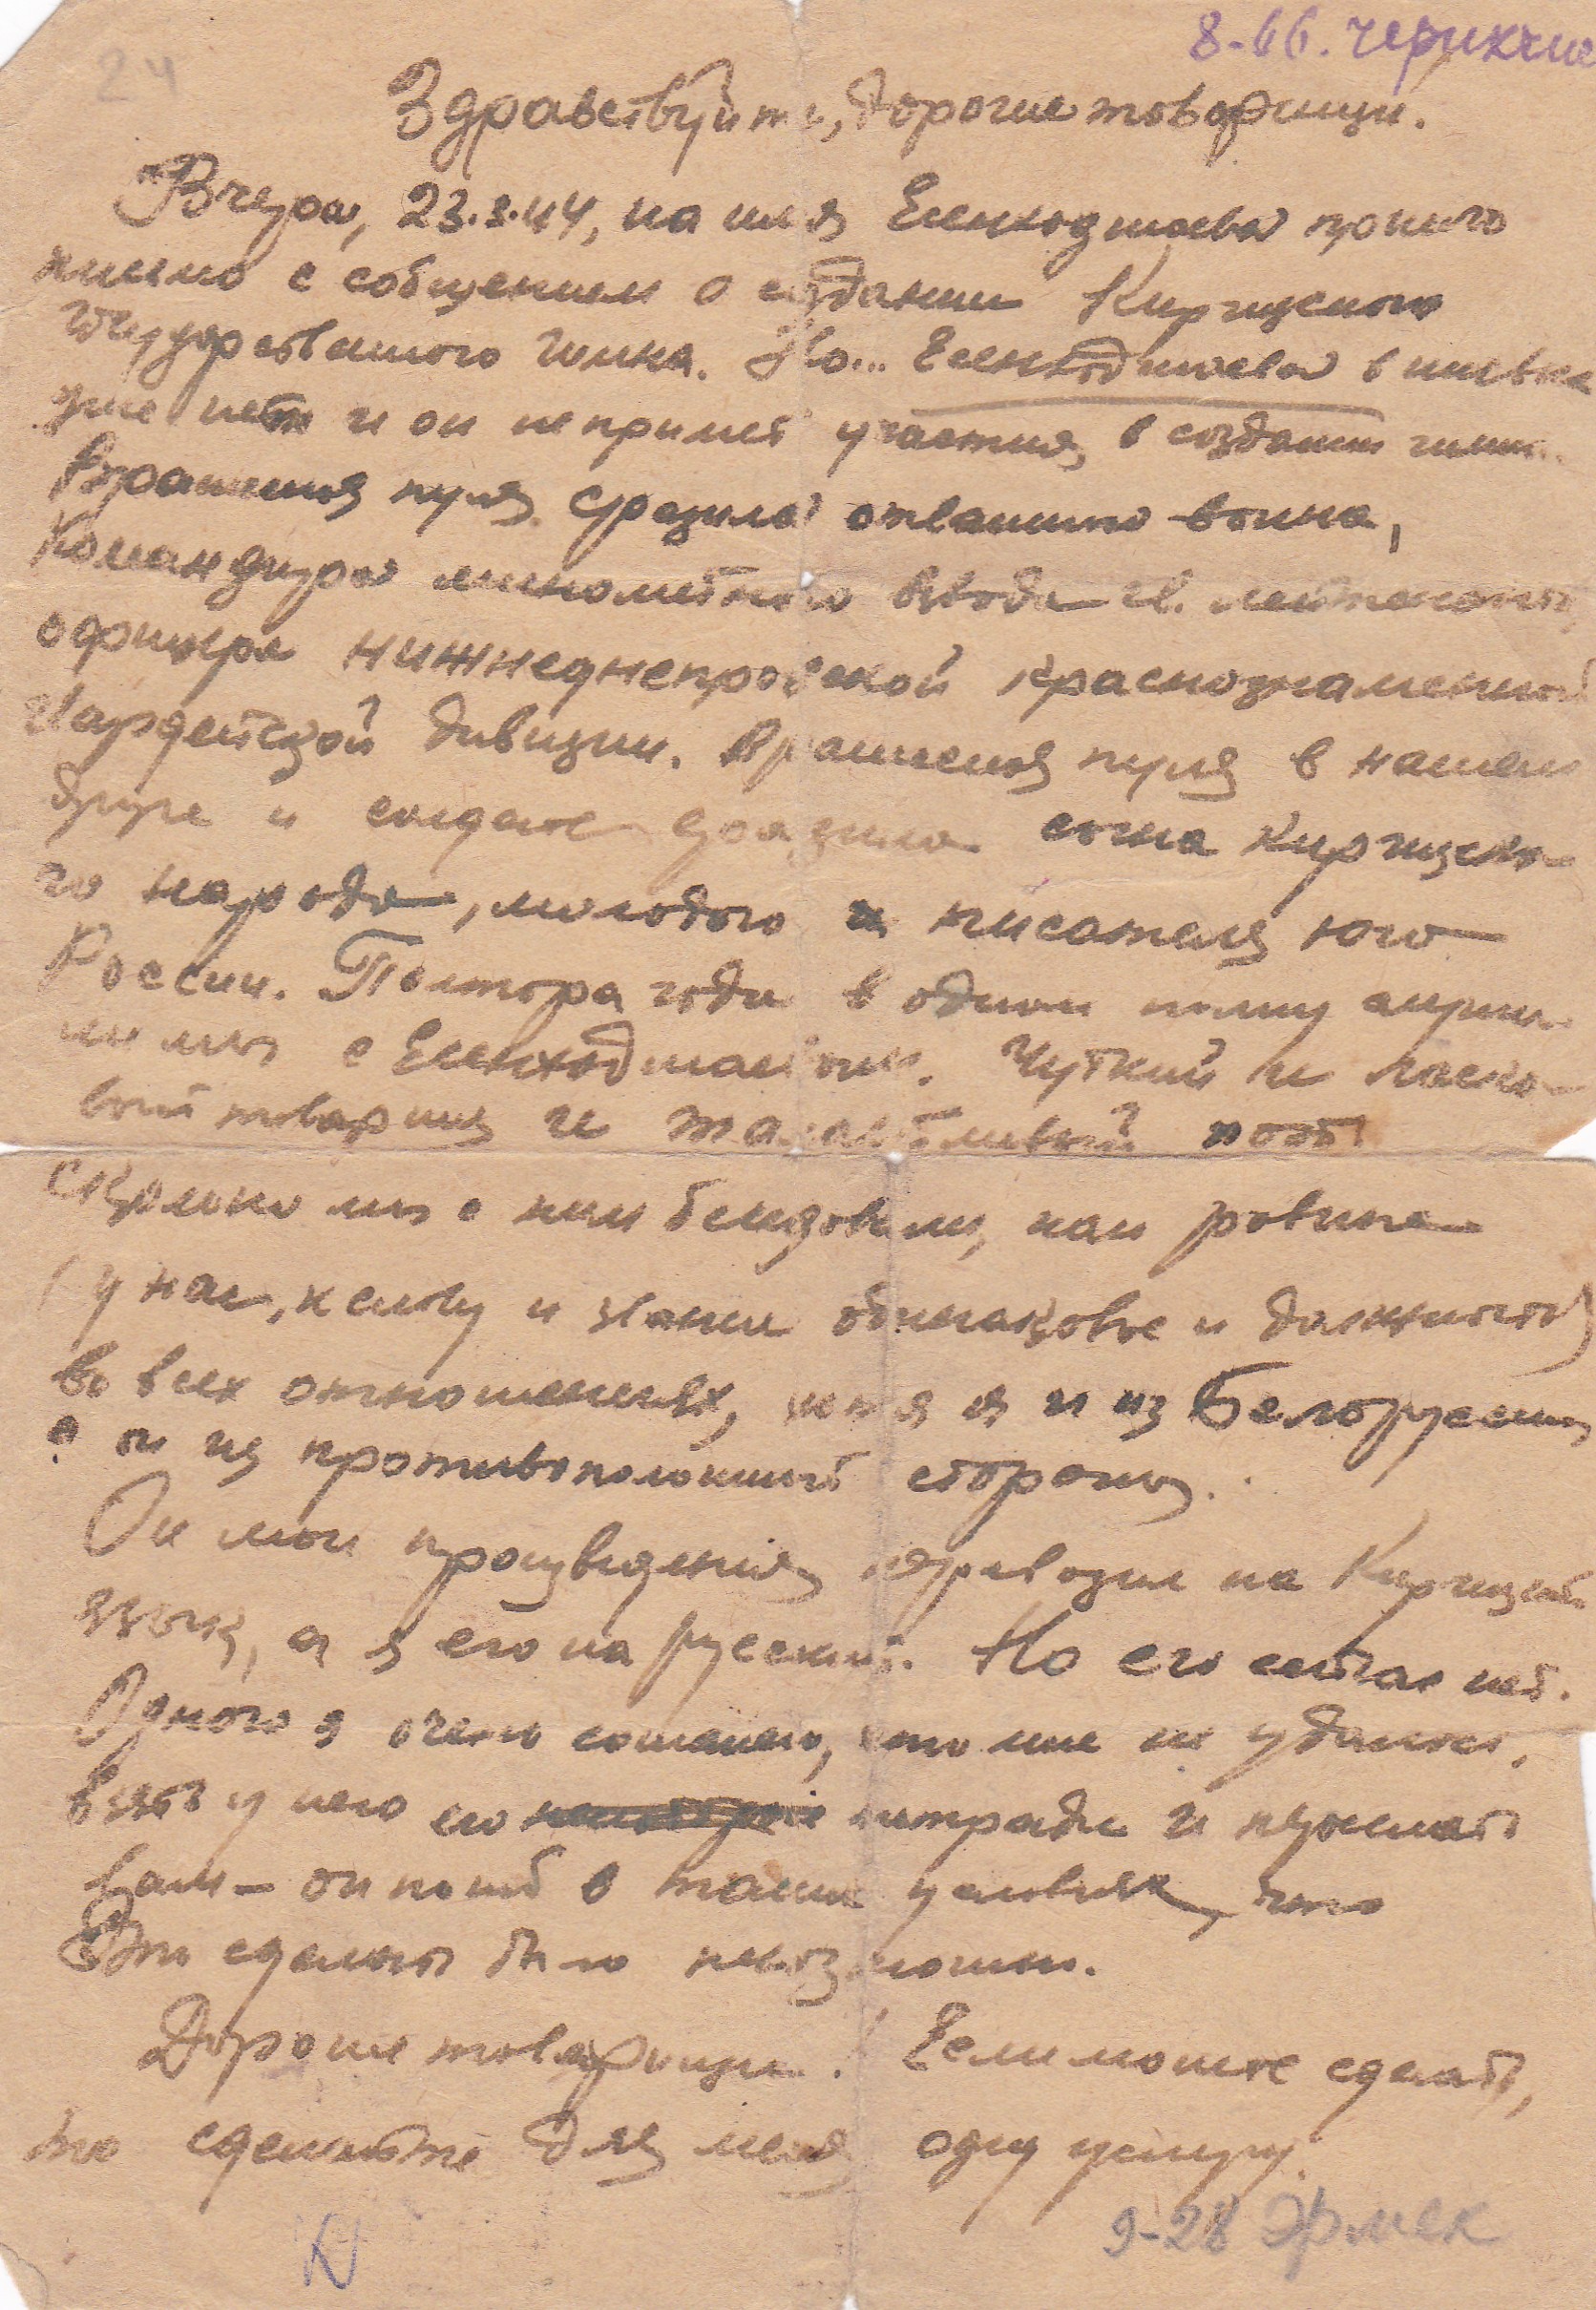 24
8-66.
Здравствуйте, дорогие товарищи.
Вчера, 23.3.44, на имя Есенходжаева пришло
письмо с собщением о создании Киргизского
государственного гимна. Но... Есенкоджоева в живых
уже нет и он не примет участия в создании гимна.
Вражеския пуля сразила отважного воина,
командира миномётного взвода гв. лейтенанта,
офицера нижнеднепровской краснознаменной
гвардейской дивизии. Вражеския пуля в нашем
друге и солдате сразила сына киргизско-
го народа, молодого писателя юго-
России. Полтора года в одном полку служи-
ли мы с Есенходжаевым. Чуткий и ласко-
вый товарищ и талантливый поэт.
Сколько мы с ним беседовали, как равные
(у нас, к слову и звание одинаковое и должность)
во всех отношениях, хотя я и из Белоруссии,
а он из противоположной стороны.
Он мои произведения переводил на Киргизский
язык, а я его на русский. Но его сейчас нет.
Одного я очень сожалею, что мне не удалось,
взять у него его тетради и переслать
вам — он погиб в таких условиях, что
это сделать было невозможно.
Дорогие товарищи! Если можете сделать,
то сделайте для меня одну услугу.
9-28 Эрмек